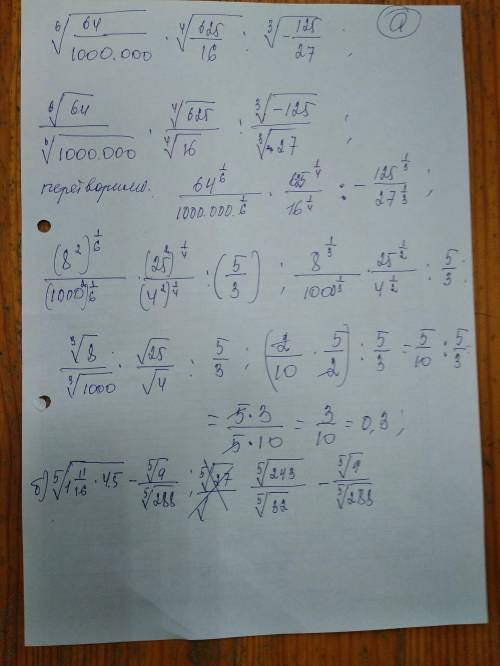 а
⁶√(64/1000.000) · ⁴√(625/16) : ³√(-125/27) ;
⁶√64/⁶√1000.000 · ⁴√625/⁴√16 : ³√-125/³√27 ;
перетворимо: 64^(1/6)/1000.000^(1/6) · 625^(1/4)/16^(1/4) : - 125^(1/3)/27^(1/3) ;
(8²)^(1/6)/(1000²)^(1/6) · (25²)^(1/4)/(4²)^(1/4) : (5/3) ; 8^(1/3)/1000^(1/3) · 25^(1/2)/4^(1/2) : 5/3 :
³√8/³√1000 · √25/√4 : 5/3 ; (2/10 · 5/2) : 5/3 = 5/10 : 5/3 =
= 5·3/5·10 = 3/10 = 0,3 ;
б) ⁵√(1 11/16 · 4.5) - ⁵√9/⁵√288 ; ⁵√243/⁵√32 - ⁵√9/⁵√288